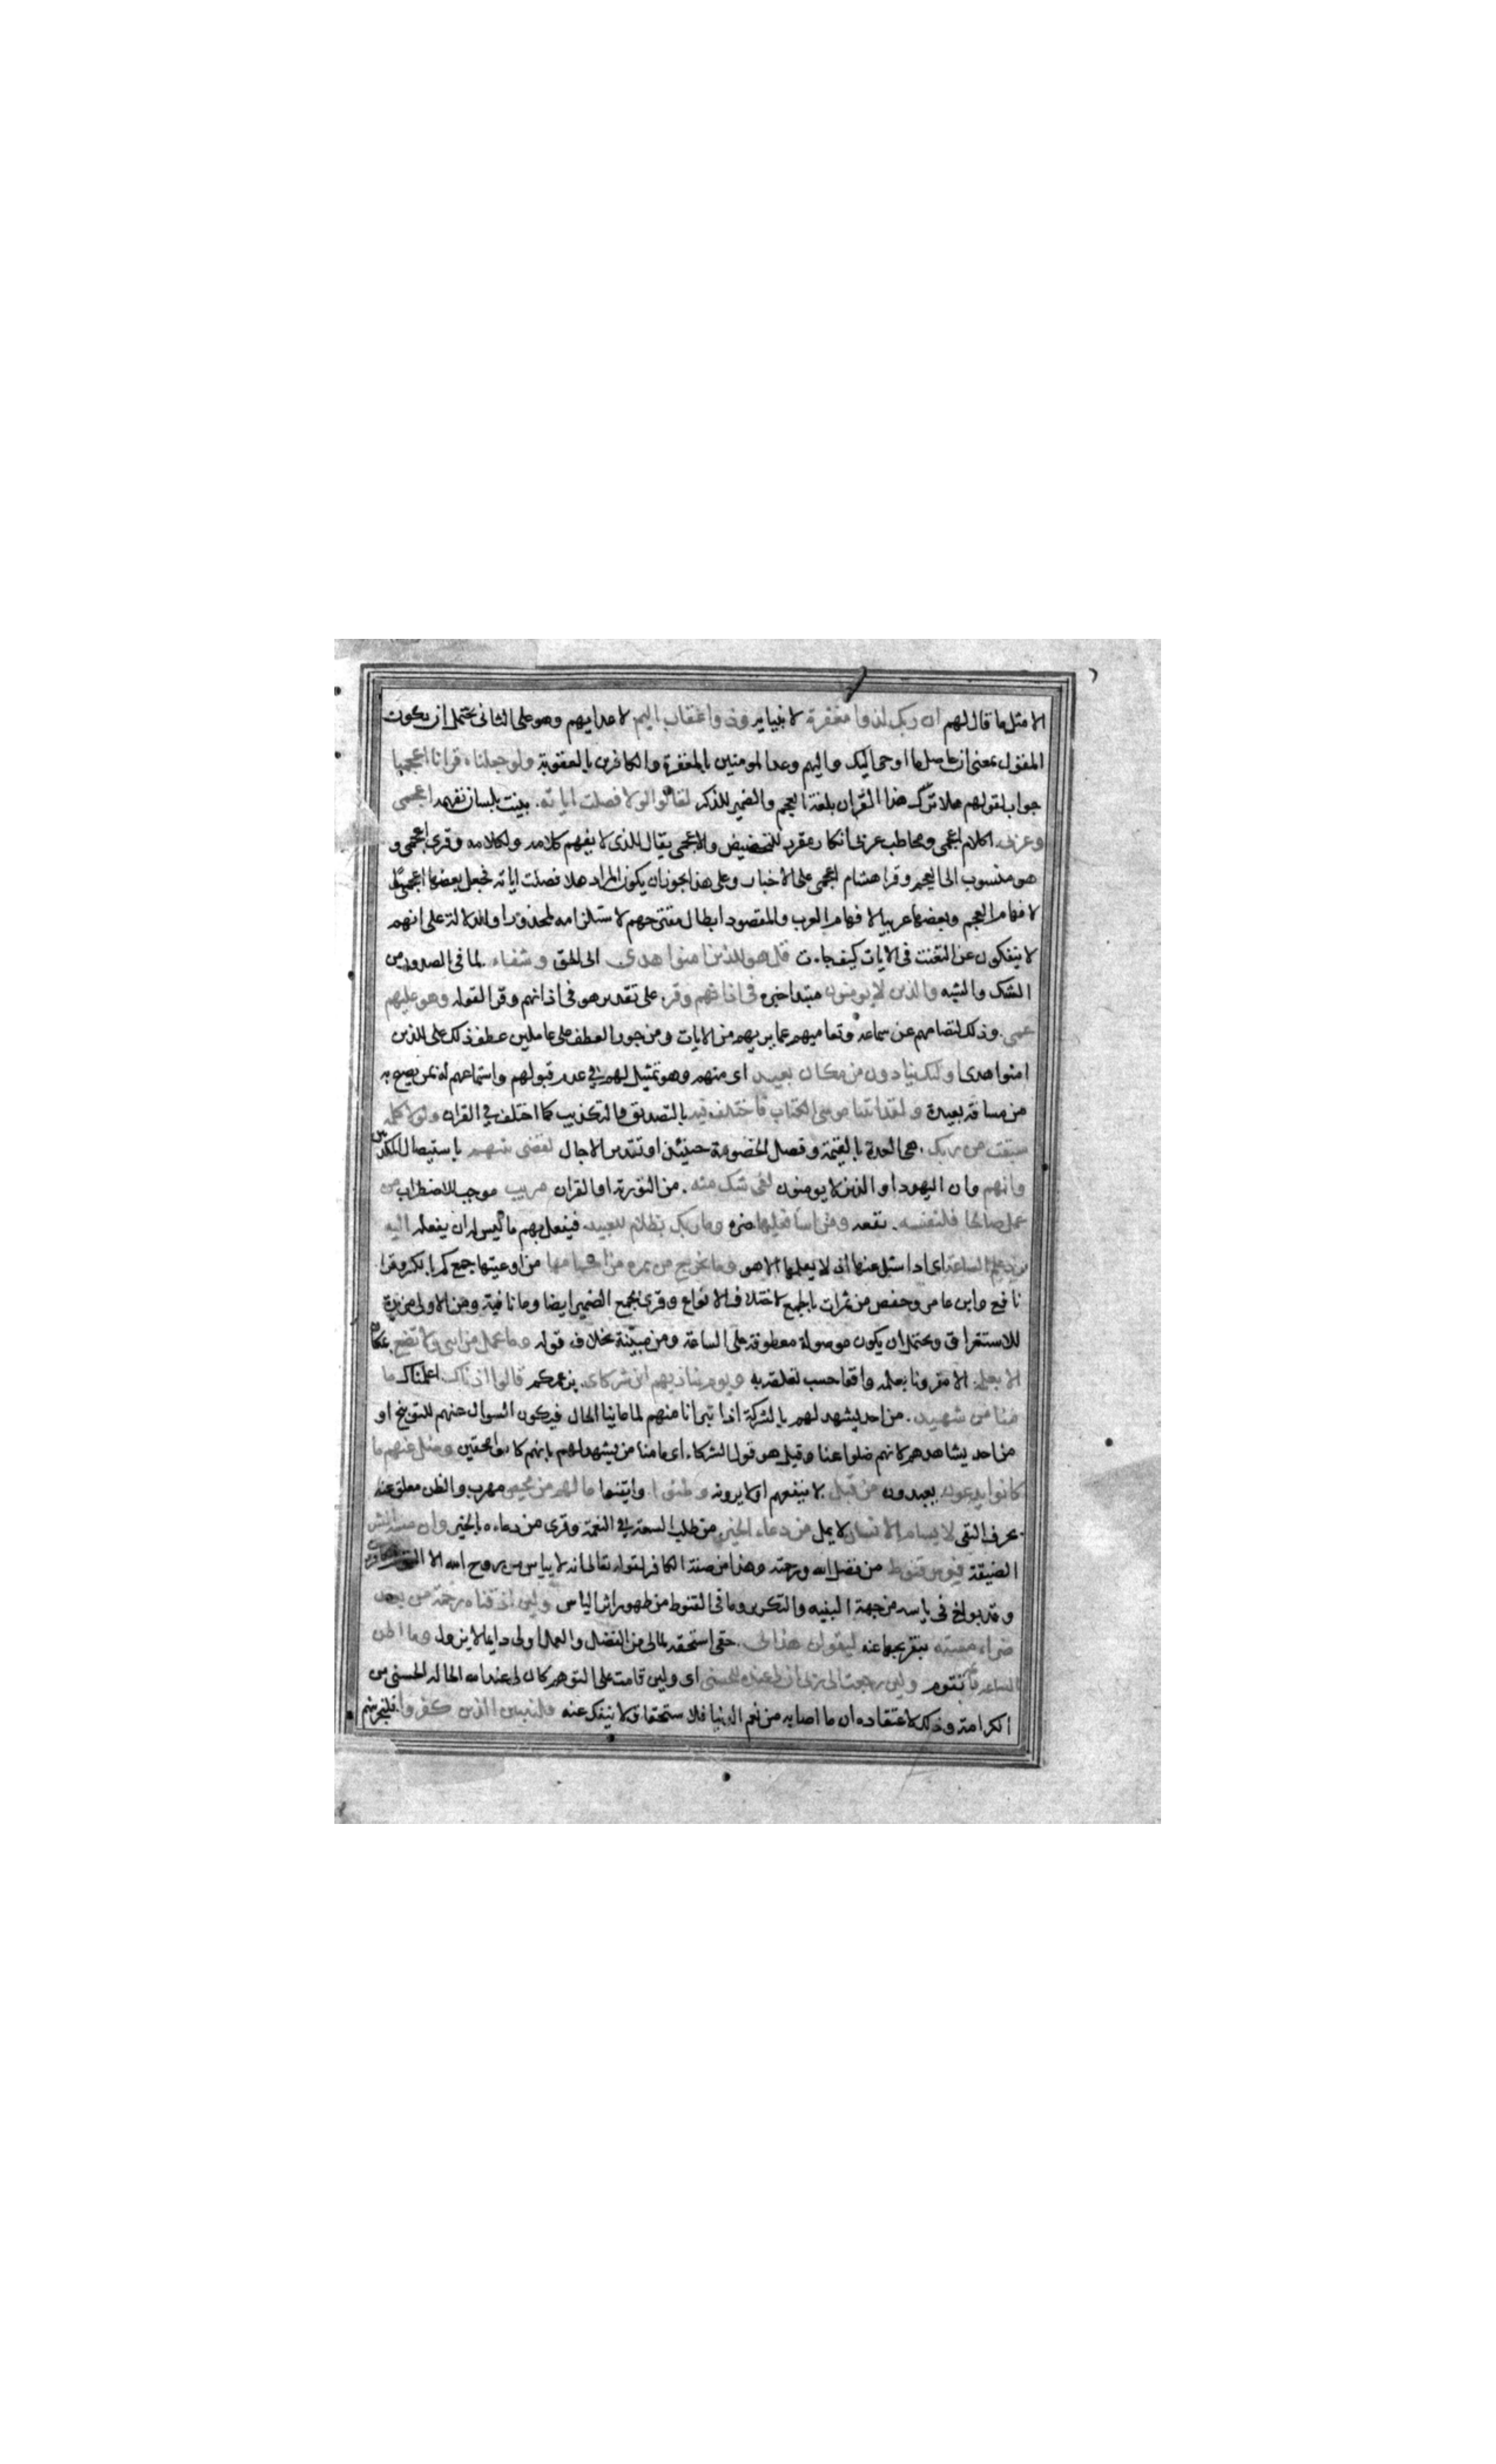 الا مثل ما قال لهم ان ربك لذوا مغفرة لانبيايه وذوا عقاب اليم لاعدايهم وهو على الثانى يحتمل ان يكون
المقول بمعنى ان حاصل ما اوحى اليك واليهم وعد المومنين بالمغفرة والكافرين بالعقوبة ولو جعلناه قرانا اعجميا
جواب لقولهم هلا نزل هذا القران بلغة العجم والضمير للذكر لقالوا لولا فصلت اياته بينت بلسان نفهمه اعجمى
وعربى اكلام اعجمى ومخاطب عربى انكار مقرر للتخصيص والاعجمى يقال للذى لا يفهم كلامه ولكلامه وقرى اعجمى و
هو منسوب الى العجم وقرا هشام اعجمى على الاخبار وعلى هذا يجوز ان يكون المراد هلا فصلت اياته فجعل بعضها اعجميا
لافهام العجم وبعضها عربيا لافهام العرب والمقصود ابطال مقترحهم لاستلزامه لمحذور او الدلالة على انهم
لا ينفكون عن التعنت فى الايات كيف جاءت قل هو للذين امنوا هدى الى الحق وشفاء لما فى الصدور من
الشك والشبه والذين لا يومنون مبتدا خبره فى اذانهم وقر على تقدير هو فى اذانهم وقر لقوله وهو عليهم
عمى وذلك لتصامهم عن سماعه وتعاميهم عما يريهم من الايات ومن جوز العطف على عاملين عطف ذلك على للذين
امنوا هدى اولئك ينادون من مكان بعيد اى منهم وهو تمثيل لهم فى عدم قبولهم واستماعهم له بمن يصيح به
من مسافة بعيدة ولقد اتينا موسى الكتاب فاختلف فيه بالتصديق والتكذيب كما اختلف فى القران ولولا كلمة
سبقت من ربك هى العدة بالقيمة وفصل الخصومة حينئذ او تقدير الاجال لقضى بينهم باستيصال المكذبين
وانهم وان اليهود او الذين لا يومنون لفى شك منه من التورية او القران مريب موجب للاضطراب من
عمل صالحا فلنفسه نفعه ومن اسا فعليها ضره وما ربك بظلام للعبيد فيفعل بهم ما ليس له ان يفعله اليه
يرد علم الساعة اى اذا سئل عنها اذ لا يعلمها الا هو وما تخرج من ثمره من اكمامها من اوعيتها جمع كم بالكسر وقرا
نافع وابن عامر وحفص من ثمرات بالجمع لاختلاف الانواع وقرى بجمع الضمير ايضا وما نافية ومن الاولى مزيدة
للاستغراق ويحتمل ان يكون موصولة معطوفة على الساعة ومن مبينة بخلاف قوله وما تحمل من انثى ولا تضع بمكان
الا بعلمه الا مقرونا بعلمه واقعا حسب تعلقه به ويوم يناديهم اين شركاى بزعمكم قالوا اذناك اعلمناك ما
منا من شهيد من احد يشهد لهم بالشركة اذا تبرانا منهم لما عاينا الحال فيكون السوال عنهم للتوبيخ او
من احد يشاهدهم لانهم ضلوا عنا وقيل هو قول الشركاء اى ما منا من يشهد لهم بانهم كانوا محقين وضل عنهم ما
كانوا يدعون يعبدون من قبل لا ينفعهم او لا يرونه وظنوا وايقنوا ما لهم من محيص مهرب والظن معلق عنه
بحرف النفى لا يسام الانسان لا يمل من دعاء الخير من طلب السعة فى النعمة وقرى من دعاء بالخير وان مسه الشر
الضيقة فيوس قنوط من فضل الله ورحمته وهذا من صفة الكافر لقوله تعالى انه لا يياس من روح الله الا القوم الكافرون
وقد بولغ فى ياسه من جهة البنيه والتكرير وما فى القنوط من ظهور اثر الياس ولين اذقناه رحمة من بعد
ضراء مسته بتفريجها عنه ليقولن هذا لى حقى استحقه لمالى من الفضل والعمل او لى دايما لا يزول وما اظن
الساعة قائمة تقوم ولين رجعت الى ربى ان لى عنده للحسنى اى ولين قامت على التوهم كان لى عند الله الحالة الحسنى من
الكرامة وذلك لاعتقاده ان ما اصابه من نعم الدنيا فلاستحقاق لا ينفك عنه فلننبين الذين كفروا فلنخبرنهم